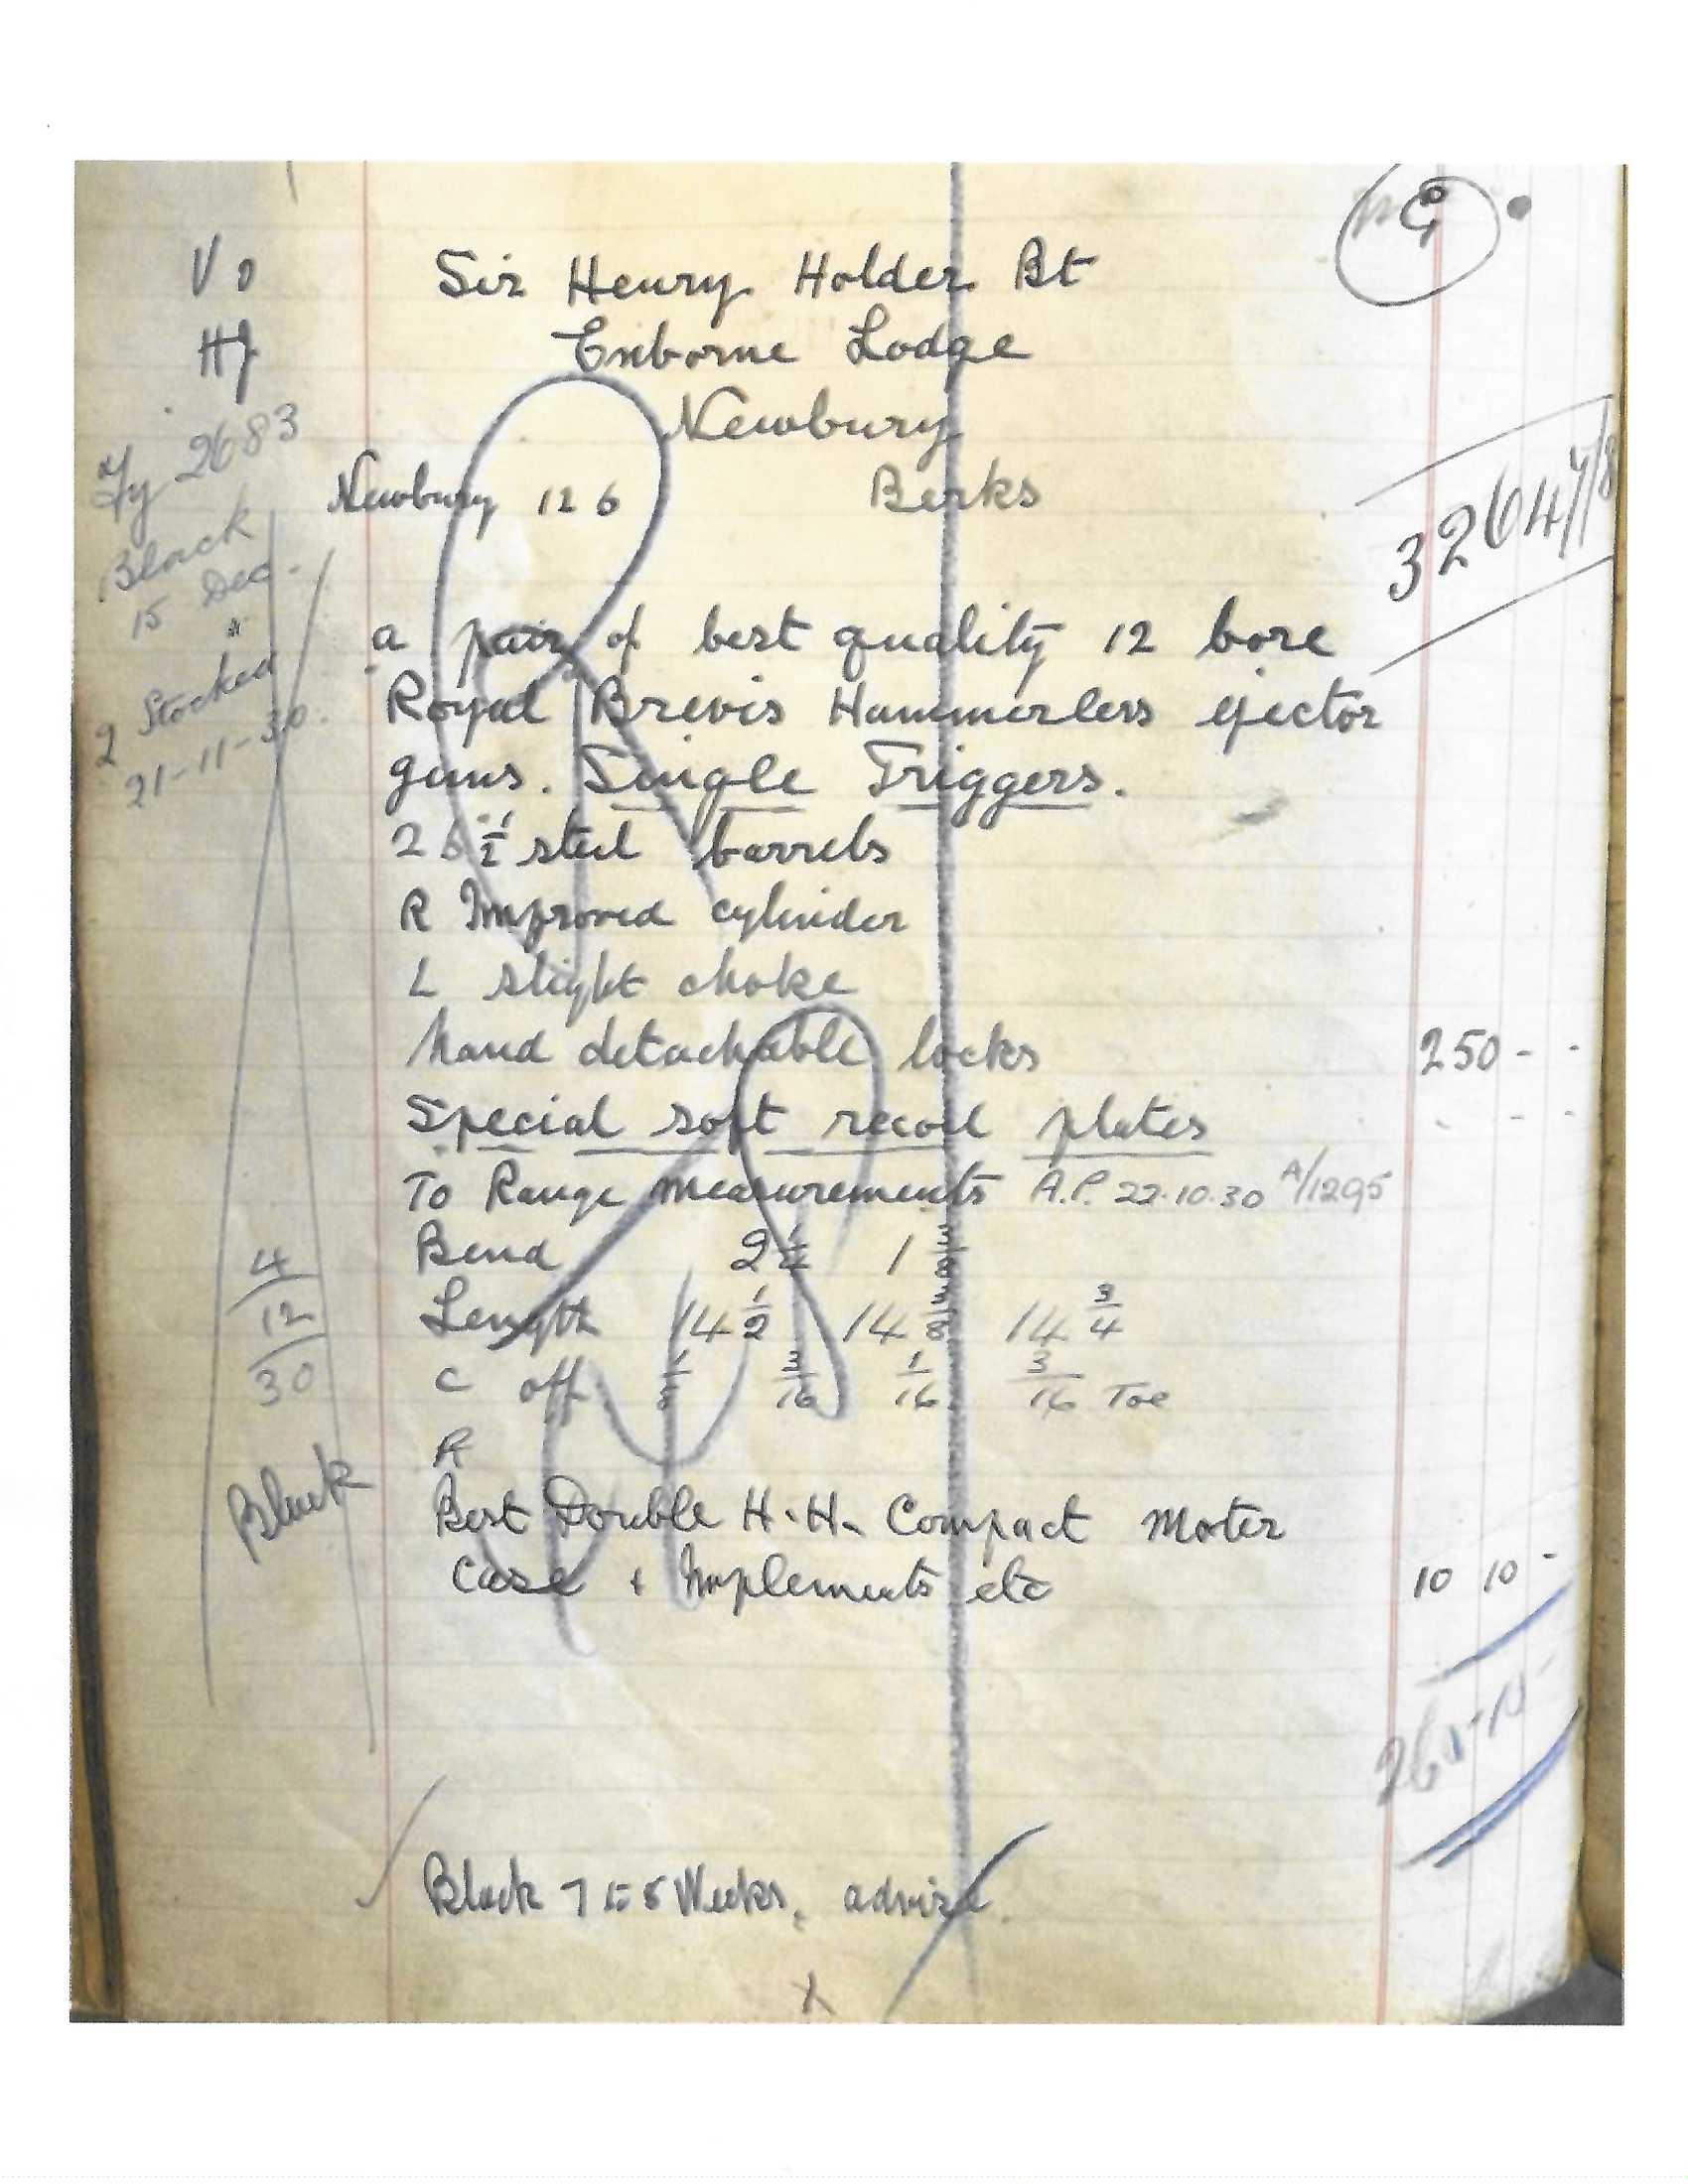 V o
Sir Henry Holder Bt
Hf
Enborne Lodge
Newbury
Fy 2683
Newbury 126
Berks
32647/8
Black
15 Dec.
"
2 Stocked
21-11-30.
a pair of best quality 12 bore
Royal Brevis Hammerless ejector
guns. Single Triggers.
26 1/2" steel barrels
R Improved cylinder
L slight choke
Hand detachable locks 250 - -
Special soft recoil plates - -
To Range measurements A.P. 22.10.30 A/1295
Bend 2 1/4 1 3/8
Length 14 1/2 14 3/8 14 3/4
C off 3/16 1/16 3/16 Toe
R
4/12/30
Black
Best Double H.H. Compact Motor
Case + Implements etc 10 10 -
260-10-
Black 7 to 8 Weeks, advise
X